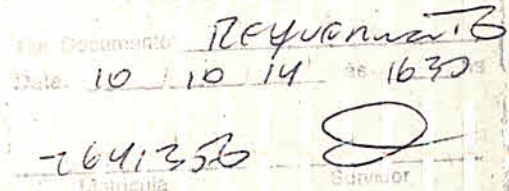 Tipo Documento: Requerimento
Data: 10 / 10 / 14 às 1630 hs
Matrícula Servidor